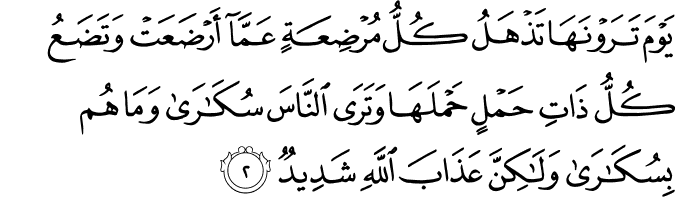 يَوْمَ تَرَوْنَهَا تَذْهَلُ كُلُّ مُرْضِعَةٍ عَمَّآ أَرْضَعَتْ وَتَضَعُ
كُلُّ ذَاتِ حَمْلٍ حَمْلَهَا وَتَرَى ٱلنَّاسَ سُكَٰرَىٰ وَمَا هُم
بِسُكَٰرَىٰ وَلَٰكِنَّ عَذَابَ ٱللَّهِ شَدِيدٌ ٢